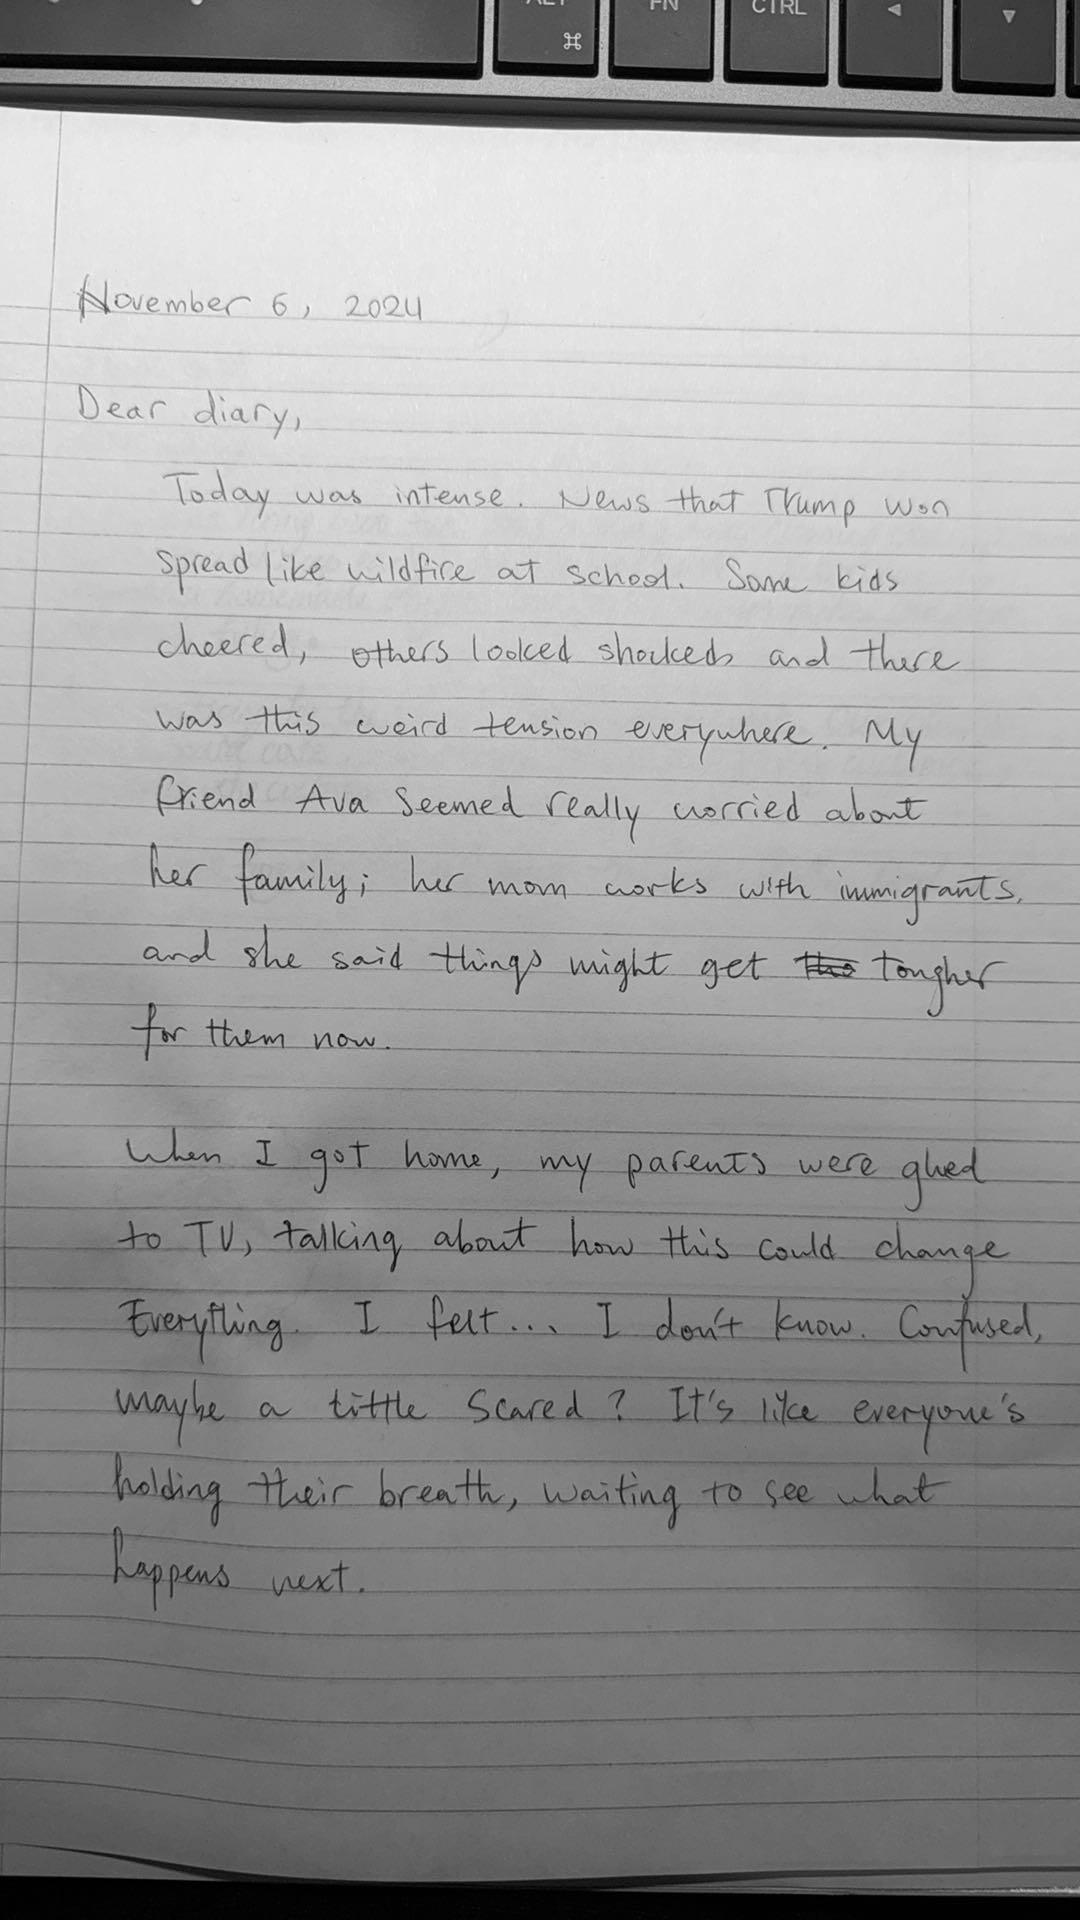 ALT
⌘
FN
CTRL
◀
▼
November 6, 2024
Dear diary,
Today was intense. News that Trump won
spread like wildfire at school. Some kids
cheered, others looked shocked, and there
was this weird tension everywhere. My
friend Ava seemed really worried about
her family; her mom works with immigrants,
and she said things might get tougher
for them now.
When I got home, my parents were glued
to TV, talking about how this could change
Everything. I felt... I don't know. Confused,
maybe a little scared? It's like everyone's
holding their breath, waiting to see what
happens next.